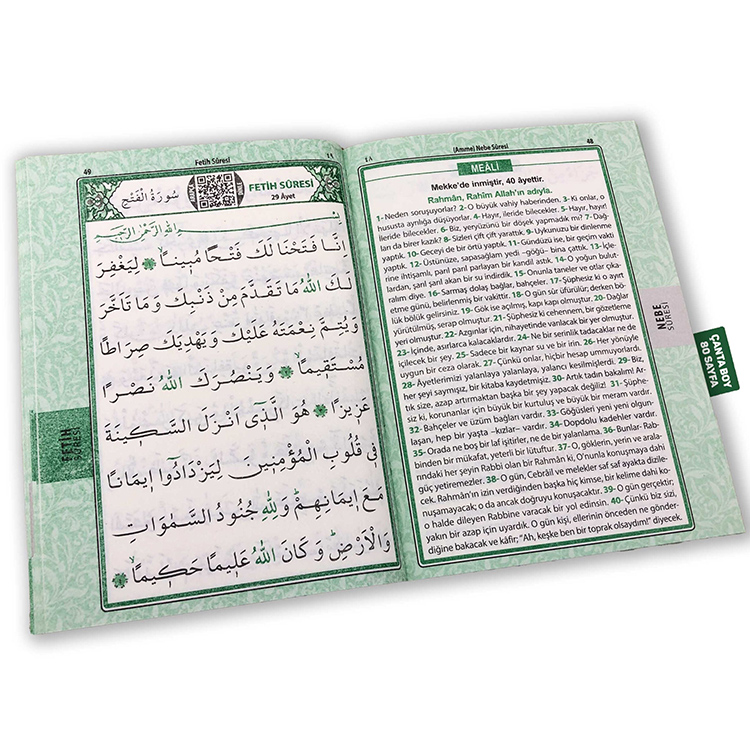 48
(Amme) Nebe Sûresi
٤٨
MEÂLİ
Mekke'de inmiştir, 40 âyettir.
Rahmân, Rahîm Allah'ın adıyla.
1- Neden soruşuyorlar? 2- O büyük vahiy haberinden. 3- Ki onlar, o
hususta ayrılığa düşüyorlar. 4- Hayır, ileride bilecekler. 5- Hayır, hayır!
İleride bilecekler. 6- Biz, yeryüzünü bir döşek yapmadık mı? 7- Dağ-
ları da birer kazık? 8- Sizleri çift çift yarattık. 9- Uykunuzu bir dinlenme
yaptık. 10- Geceyi de bir örtü yaptık. 11- Gündüzü ise, bir geçim vakti
yaptık. 12- Üstünüze, sapasağlam yedi –göğü– bina çattık. 13- İçle-
rine ihtişamlı, parıl parıl parlayan bir kandil astık. 14- O yoğun bulut-
lardan, şarıl şarıl akan bir su indirdik. 15- Onunla taneler ve otlar çıka-
ralım diye. 16- Sarmaş dolaş bağlar, bahçeler. 17- Şüphesiz ki o ayırt
etme günü, belirlenmiş bir vakittir. 18- O gün sûr üfürülür; derken bö-
lük bölük gelirsiniz. 19- Gök ise açılmış, kapı kapı olmuştur. 20- Dağlar
yürütülmüş, serap olmuştur. 21- Şüphesiz ki cehennem, bir gözetleme
yeri olmuştur. 22- Azgınlar için, nihayetinde varılacak bir yer olmuştur.
23- İçinde, asırlarca kalacaklardır. 24- Ne bir serinlik tadacaklar ne de
içilecek bir şey. 25- Sadece bir kaynar su ve bir irin. 26- Her yönüyle
uygun bir ceza olarak. 27- Çünkü onlar, hiçbir hesap ummuyorlardı.
28- Âyetlerimizi yalanlaya yalanlaya, yalancı kesilmişlerdi. 29- Biz,
her şeyi saymışız, bir kitaba kaydetmişiz. 30- Artık tadın bakalım! Ar-
tık size, azap artırmaktan başka bir şey yapacak değiliz! 31- Şüphe-
siz ki, korunanlar için büyük bir kurtuluş ve büyük bir meram vardır.
32- Bahçeler ve üzüm bağları vardır. 33- Göğüsleri yeni yeni olgun-
laşan, hep bir yaşta –kızlar– vardır. 34- Dopdolu kadehler vardır.
35- Orada ne boş bir laf işitirler, ne de bir yalanlama. 36- Bunlar- Rab-
binden bir mükafat, yeterli bir lütuftur. 37- O, göklerin, yerin ve arala-
rındaki her şeyin Rabbi olan bir Rahmân ki, O'nunla konuşmaya dahi
güç yetiremezler. 38- O gün, Cebrâil ve melekler saf saf ayakta dizile-
cek. Rahmân'ın izin verdiğinden başka hiç kimse, bir kelime dahi ko-
nuşamayacak; o da ancak doğruyu konuşacaktır. 39- O gün gerçektir,
o halde dileyen Rabbine varacak bir yol edinsin. 40- Çünkü biz sizi,
yakın bir azap için uyardık. O gün kişi, ellerinin önceden ne gönder-
diğine bakacak ve kâfir; "Ah, keşke ben bir toprak olsaydım!" diyecek.
NEBE
SÛRESİ
ÇANTA BOY
80 SAYFA
49
Fetih Sûresi
٤٩
سُورَةُ الْفَتْحِ
FETİH SÛRESİ
29 Âyet
بِسْمِ اللّٰهِ الرَّحْمٰنِ الرَّحِيمِ
اِنَّا فَتَحْنَا لَكَ فَتْحًا مُبٖينًاۙ ﴿١﴾ لِيَغْفِرَ
لَكَ اللّٰهُ مَا تَقَدَّمَ مِنْ ذَنْبِكَ وَمَا تَاَخَّرَ
وَيُتِمَّ نِعْمَتَهُ عَلَيْكَ وَيَهْدِيَكَ صِرَاطًا
مُسْتَقٖيمًاۙ ﴿٢﴾ وَيَنْصُرَكَ اللّٰهُ نَصْرًا
عَزٖيزًا ﴿٣﴾ هُوَ الَّذٖٓى اَنْزَلَ السَّكٖينَةَ
فٖى قُلُوبِ الْمُؤْمِنٖينَ لِيَزْدَادُٓوا اٖيمَانًا
مَعَ اٖيمَانِهِمْؕ وَلِلّٰهِ جُنُودُ السَّمٰوَاتِ
وَالْاَرْضِؕ وَكَانَ اللّٰهُ عَلٖيمًا حَكٖيمًاۙ ﴿٤﴾
FETİH
SÛRESİ